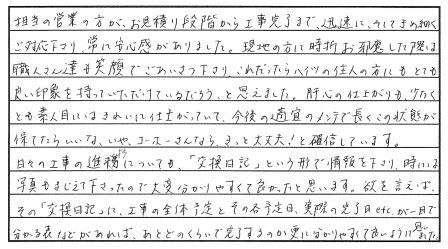 担当の営業の方が、お見積り段階から工事完了まで、迅速に、そしてきめ細く
ご対応下さり、常に安心感がありました。現地の方に時折お邪魔した際は
職人さん達も笑顔でごあいさつ下さり、これだったらハイツの住人の方にもとても
良い印象を持っていただけているだろう、と思えました。肝心の仕上がりも、少なく
とも素人目にはきれいに仕上がっていて、今後の適宜のメンテで長くこの状態が
保てたらいいな、いや、ユーホーさんなら、きっと大丈夫!と確信しています。
日々の工事の進捗についても、「交換日記」という形で情報を下さり、時には
写真もまじえて下さったので大変分かりやすくて良かったと思います。欲を言えば、
その「交換日記」に、工事の全体予定とその各予定日、実際の完了日etc.が一目で
分かる表などがあれば、あとどのくらいで完了するのか更に分かりやすくて良いように思いました